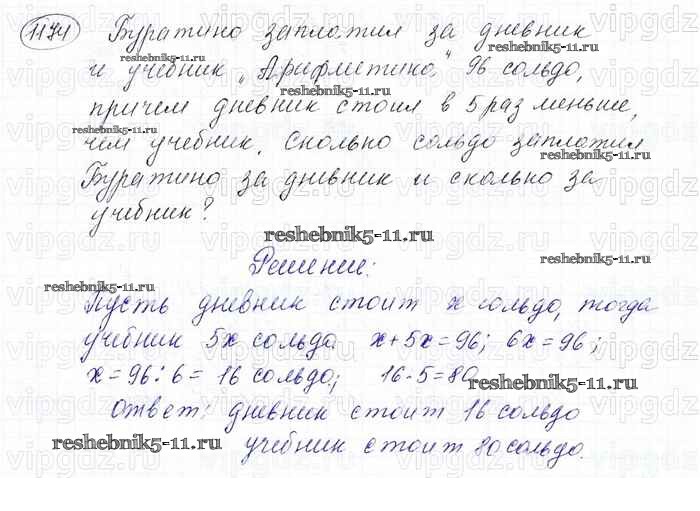 1174 Буратино заплатил за дневник
и учебник „Арифметика" 96 сольдо,
причем дневник стоил в 5 раз меньше,
чем учебник. Сколько сольдо заплатил
Буратино за дневник и сколько за
учебник?
Решение:
Пусть дневник стоит x сольдо, тогда
учебник 5x сольдо x+5x=96; 6x=96;
x=96:6= 16 сольдо; 16·5=80
Ответ: дневник стоит 16 сольдо
учебник стоит 80 сольдо.
reshebnik5-11.ru
reshebnik5-11.ru
reshebnik5-11.ru
reshebnik5-11.ru
reshebnik5-11.ru
reshebnik5-11.ru
reshebnik5-11.ru
reshebnik5-11.ru
reshebnik5-11.ru
vipgdz.ru